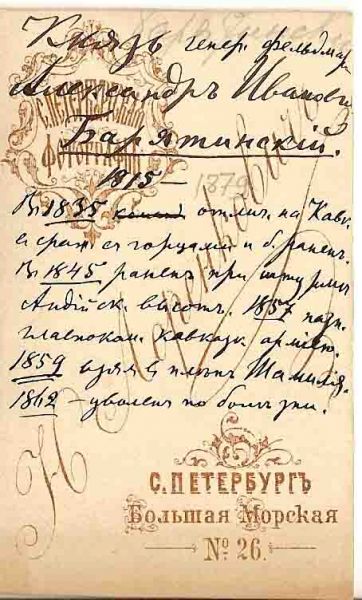 Князъ генер. фельдмар
Александръ Иванови
Барятинскій.
1815 — 1879
С.ПЕТЕРБУРГСКАЯ
ФОТОГРАФІЯ
Въ 1835 команд отлич. на Кавк.
въ сраж. съ горцами и б. раненъ.
Въ 1845 раненъ при штурмѣ
Андійск. высотъ. 1857 назн.
главноком. кавказк. арміею.
1859 взялъ въ плѣнъ Шамиля.
1862 — уволенъ по болѣзни.
С.ПЕТЕРБУРГЪ
Большая Морская
№ 26.